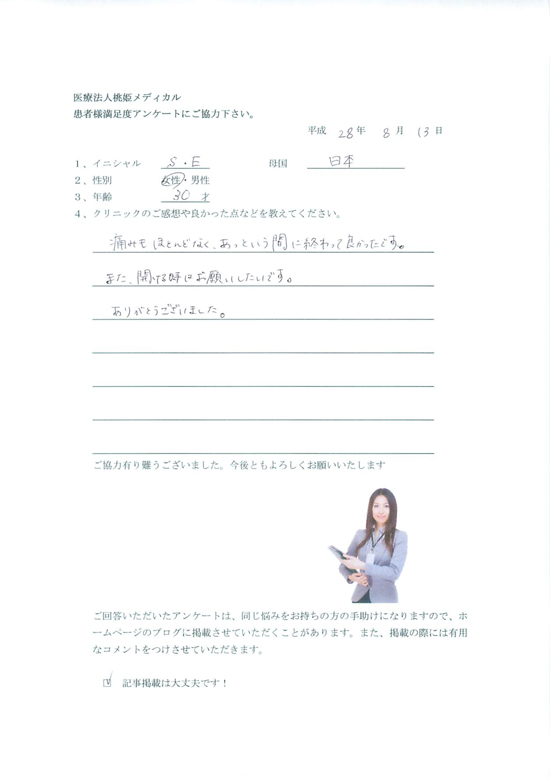 医療法人桃姫メディカル
患者様満足度アンケートにご協力下さい。
平成 28年 8月 13日
1、イニシャル S・E 母国 日本
2、性別 女性・男性
3、年齢 30 才
4、クリニックのご感想や良かった点などを教えてください。
痛みもほとんどなく、あっという間に終わって良かったです。
また、開ける時はお願いしたいです。
ありがとうございました。
ご協力有り難うございました。今後ともよろしくお願いいたします
ご回答いただいたアンケートは、同じ悩みをお持ちの方の手助けになりますので、ホ
ームページのブログに掲載させていただくことがあります。また、掲載の際には有用
なコメントをつけさせていただきます。
☑ 記事掲載は大丈夫です！